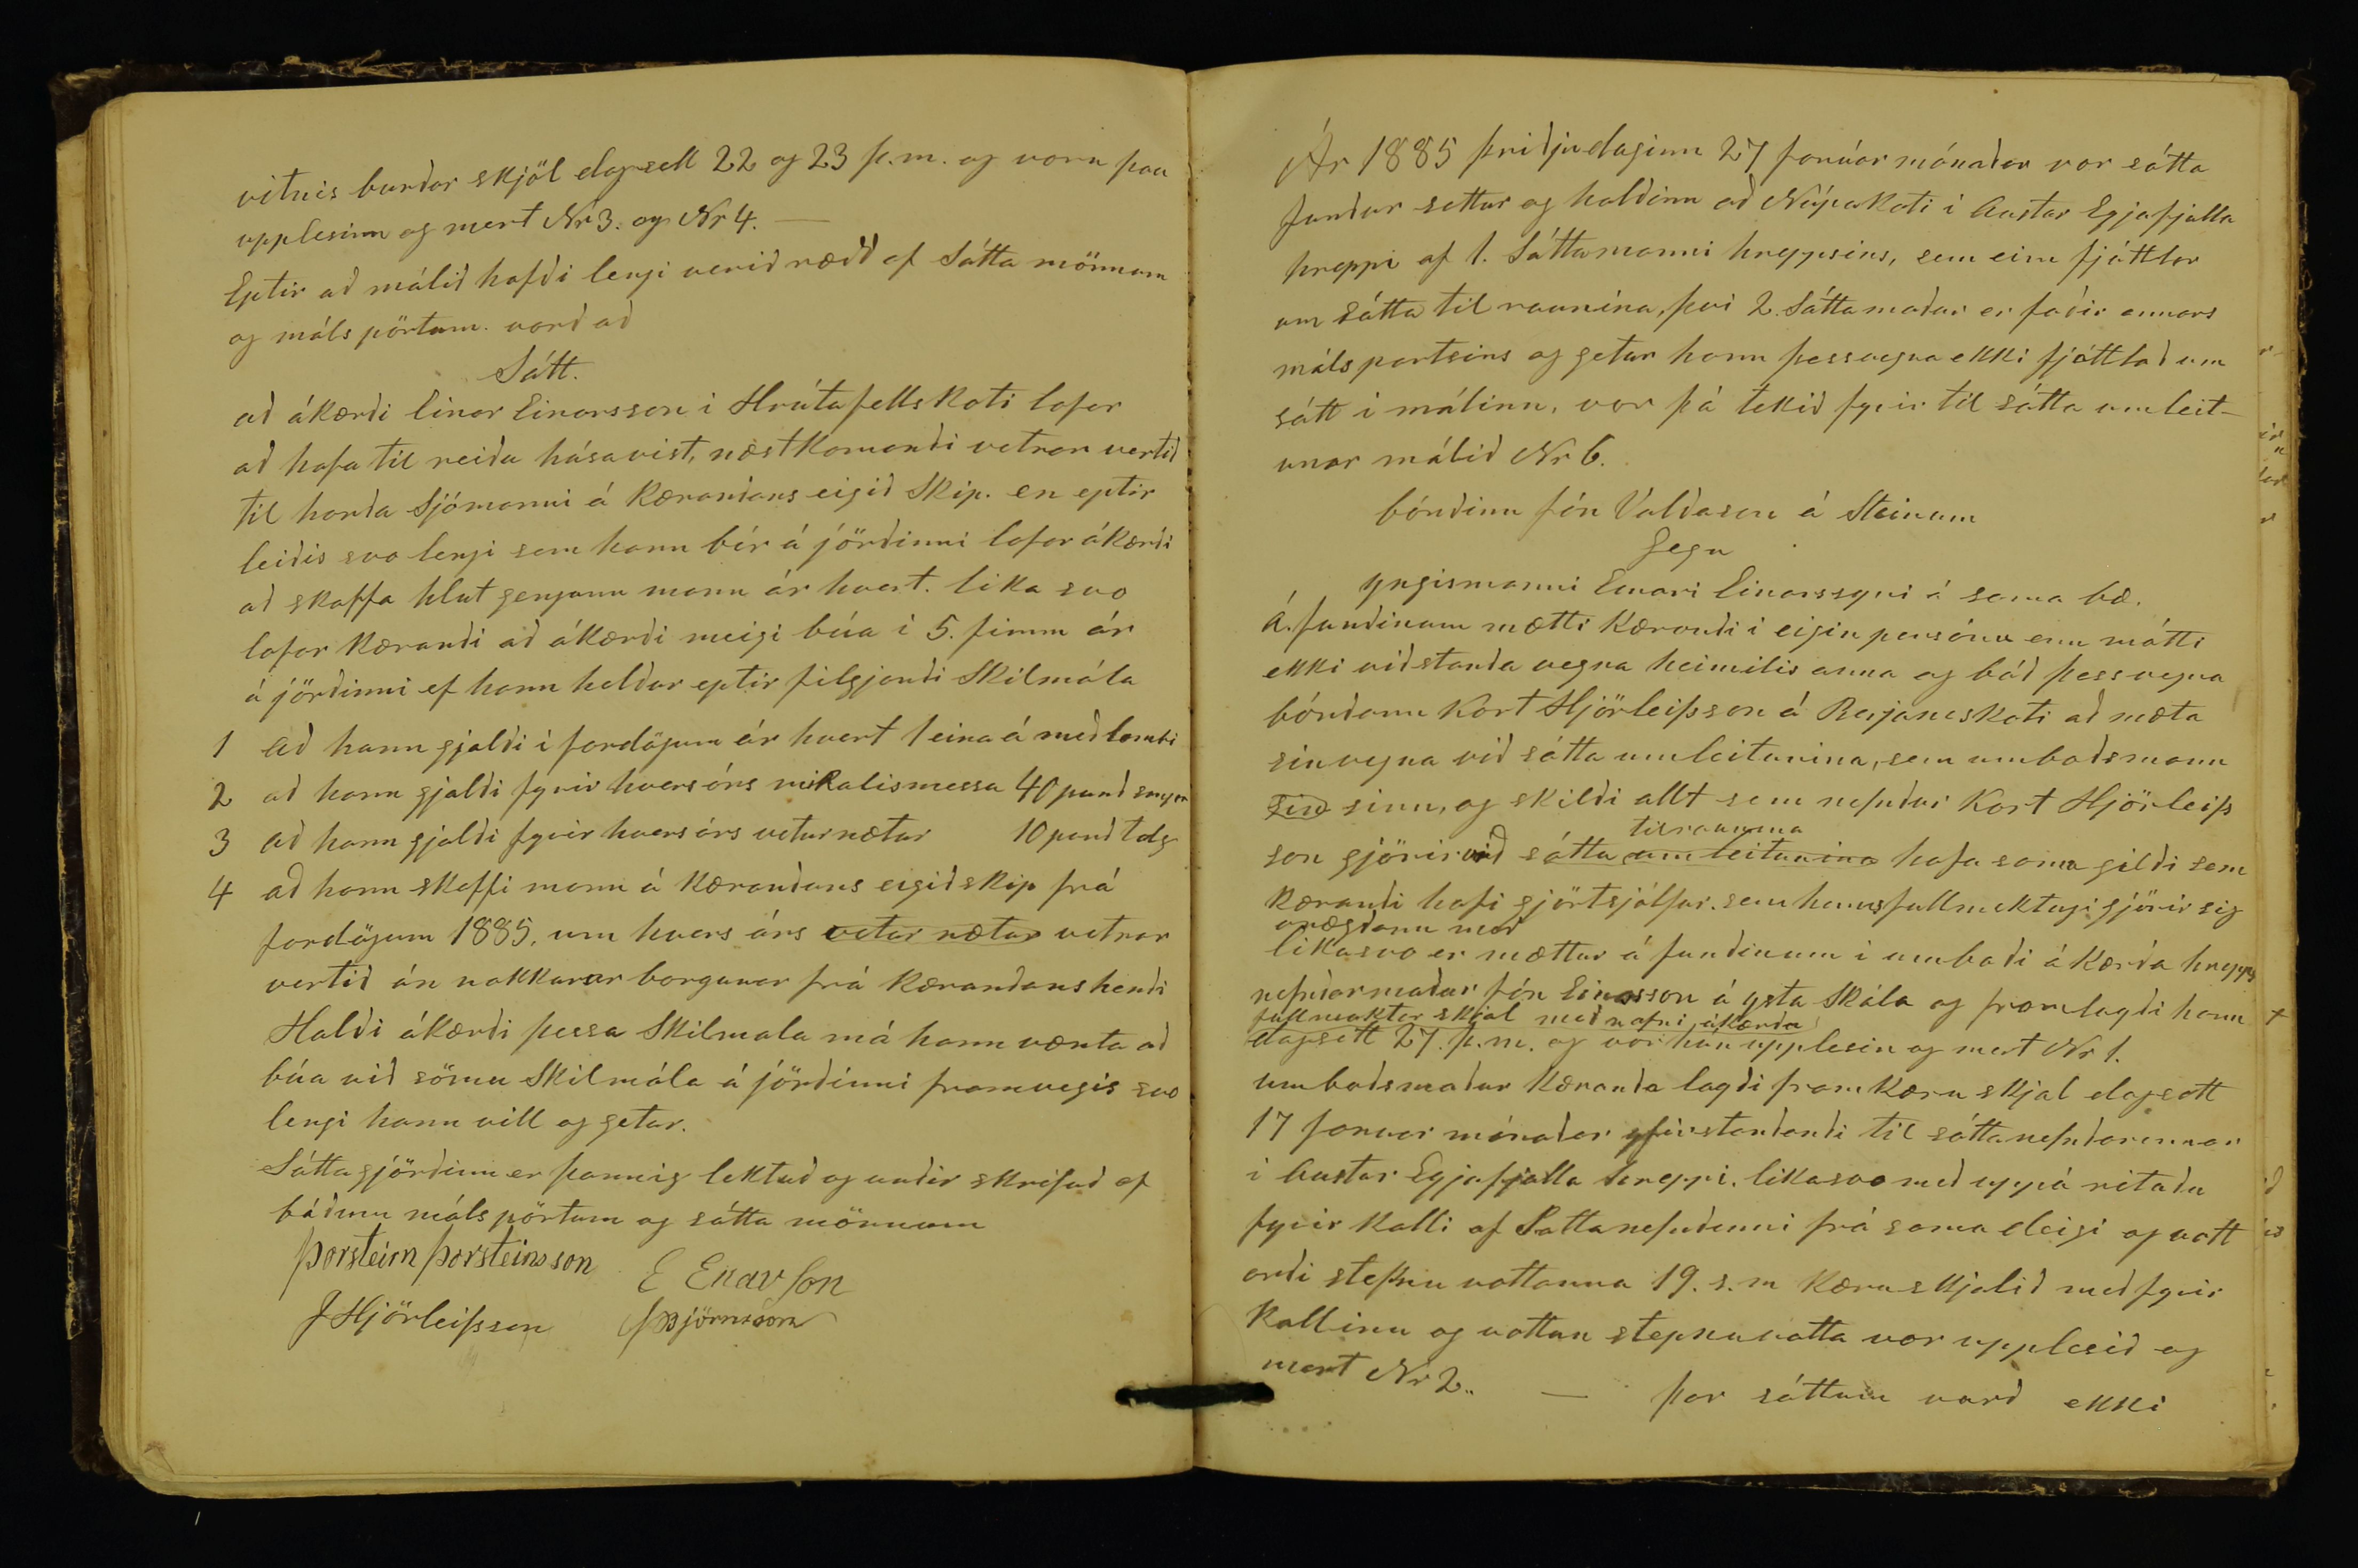 vitnis burdar skjöl dagsett 22 og 23 þ.m. og voru þau
upplesinn og mert Nr 3. og Nr 4. —
Eptir að málið hafði lengi verið rædd af Sátta mönnum
og máls pörtum. varð að
Sátt.
að ákærdi Einar Einarsson i Hrútafellskoti lofar
að hafa til reidu hásavist, næstkomandi vetrar vertid
til handa Sjómanni á kærandans eigið Skip. en eptir
leidis svo lengi sem hann bír á jörðinni lofar ákærði
að skaffa hlut gengann mann ár hvert. lika svo
lofar kærandi að ákærdi meigi búa i 5. fimm ár
á jörðinni ef hann heldur eptir filgjandi Skilmála
1 að hann gjaldi i fardögum ár hvert 1 eina á med lambi
2 að hann gjaldi fyrir hvers árs mikalismessa 40 pund smjer
3 að hann gjaldi fyrir hvers árs veturnætur 10 pund tolg
4 að hann skaffi mann á kærandans eigið skip frá
fardögum 1885, um hvers árs vetur nætur vetrar
vertid án nokkurar borgunar frá kærandans hendi
Haldi ákærdi þessa Skilmala má hann vænta að
búa við sömu Skilmála á jörðinni framvegis svo
lengi hann vill og getur.
Sáttagjörðinn er þannig lektud og undir skrifud af
bádum máls pörtum og sátta mönnum
Þorsteinn Þorsteinsson E Einarson
J Hjörleifsson Björnsson
Ár 1885 þriðjudaginn 27 janúar mánadar var sátta
fundur settur og haldinn að Núpakoti i Austur Eyjafjalla
hreppi af 1. Sáttamanni hreppsins, sem einn fjáttlar
um sátta til raunina, þvi 2. Sáttamadur er fadir annars
máls partsins og getur hann þessvegna ekki fjáttlad um
sátt i málinu, var þá tekið fyrir til sátta umleit-
unar málið Nr 6.
bóndinn Jón Valdason á Steinum
Gegn
yngismanni Einari Einarssyni á sama bæ.
Á fundinum mætti Kærandi i eigin persónu enn mátti
ekki vidstanda vegna heimilis anna og bád þess vegna
bóndann Kort Hjörleifsson á Berjaneskoti að mæta
sinvegna við sátta umleitunina, sem umbodsmann
sin sinn, og skildi allt sem nefndur Kort Hjörleifs
tilraunina
son gjörir við sátta umleitunina hafa sama gildi sem
kærandi hafi gjört sjálfur. sem hans fullmektugi gjörir sig
anægdann med
likasvo er mættur á fundinum i umbodi ákærda hrepps
nefndarmadur Jón Einarsson á ysta Skála og framlagdi hann
fullmaktar skjal med nafni ákærda
dagsett 27. þ.m. og var hún upplesin og mert Nr 1.
umbodsmadur kæranda lagdi fram kæru skjal dagsett
17 januar mánadar yfirstandandi til sáttanefndarinnar
i Austur Eyjafjalla hreppi. likasvo med uppá ritadu
fyrir kalli af Sattanefndinni frá sama deigi og vott
ordi stefnu vottanna 19. s.m Kæruskjalid med fyrir
kallinu og vottun stefnuvotta var upplesið og
mert Nr 2. — þar sáttum vard ekki